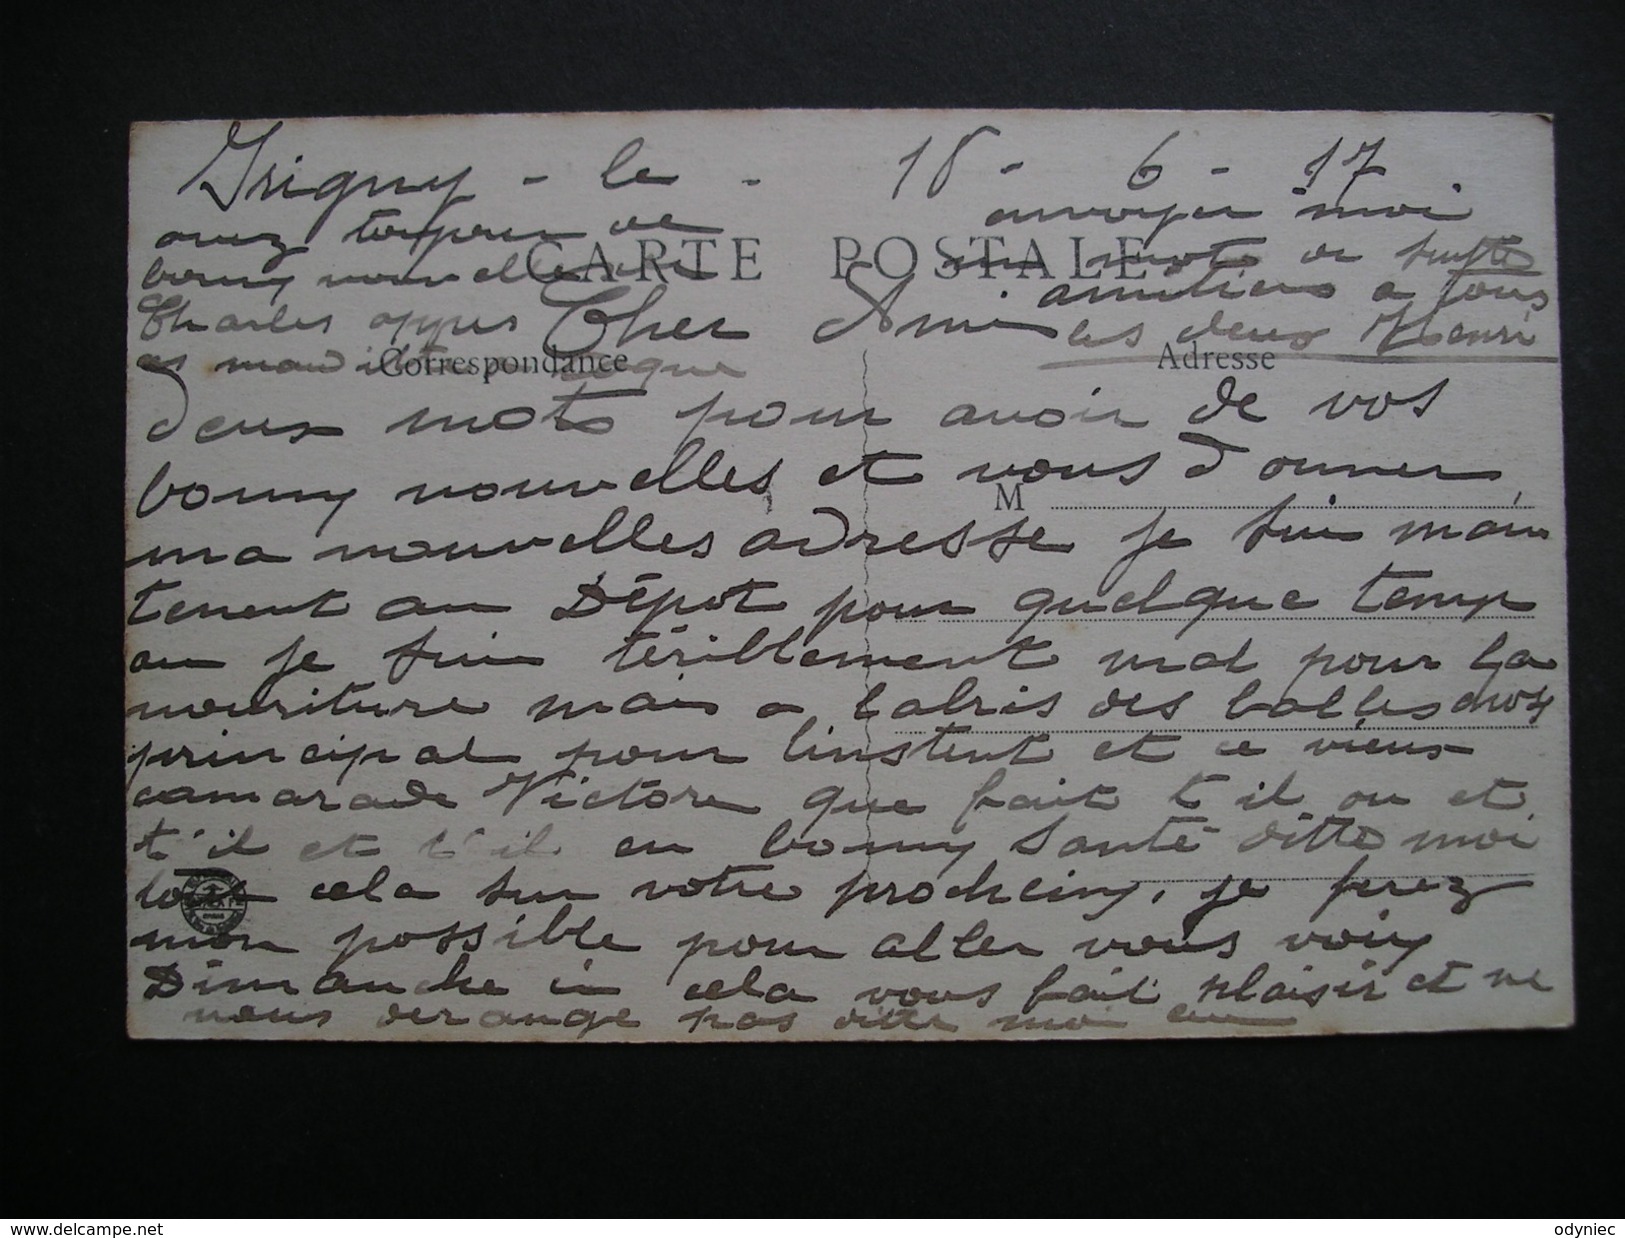 Grigny - le - 18 - 6 - 17
CARTE POSTALE
Cher Ami
Correspondance
Adresse
M
deux mots pour avoir de vos
bonny nouvelles et vous donner
ma nouvelles adresse je suis main
tenent au Dépot pour quelque temp
ou je suis tériblement mal pour la
nouriture mais a labris des balles
principal pour linstent et ce vieux
camarade Victore que fait t'il ou et
t'il et t'il en bonny Santé ditte moi
tout cela sur votre procheiny, je ferez
mon possible pour aller vous voiry
Dimanche si cela vous fait plaisir et ne
vous derange pas ditte moi
avez toujour de
bonny nouvelle
Charles apprer
envoyer moi
un mots de suitte
amitiers a tous
les deux Henri
delcampe.net
odyniec